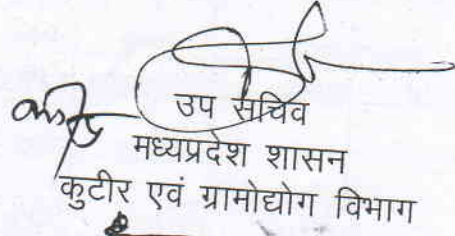 उप सचिव
मध्यप्रदेश शासन
कुटीर एवं ग्रामोद्योग विभाग